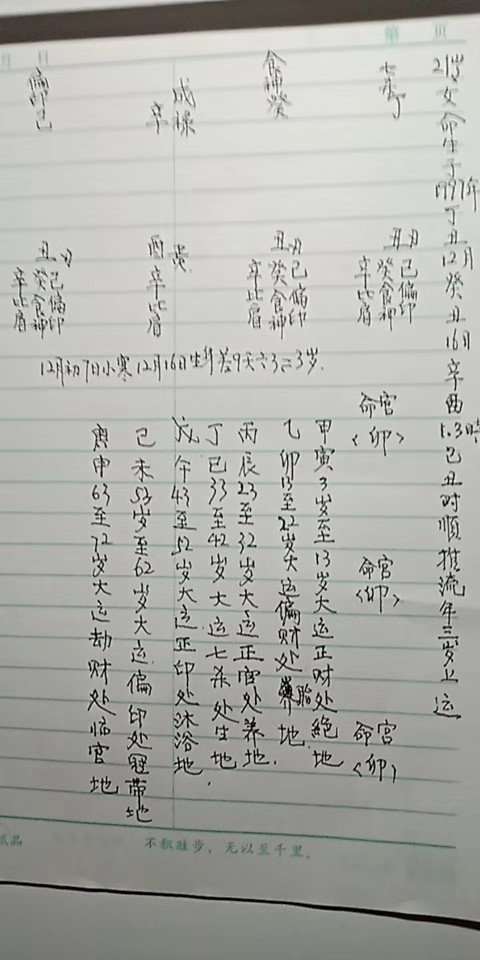 月 日 第 页
21岁女命生于1997年丁丑12月癸丑16日辛酉1.3时己丑时顺推流年三岁上运
七杀丁
食神癸
成禄
辛
偏印己
丑
己偏印
癸食神
辛比肩
丑
己偏印
癸食神
辛比肩
酉
辛比肩
丑
己偏印
癸食神
辛比肩
12月初7日小寒12月16日生
3岁.
命宫
<卯>
命宫
<卯>
命宫
<卯>
甲寅3岁至13岁大运正财处绝地
乙卯13至22岁大运偏财处胎地.
丙辰23至32岁大运正官处养地.
丁巳33至42岁大运七杀处生地.
戊午43至52岁大运正印处沐浴地
己未53岁至62岁大运偏印处冠带地
庚申63至72岁大运劫财处临官地
纸品 不积跬步，无以至千里.